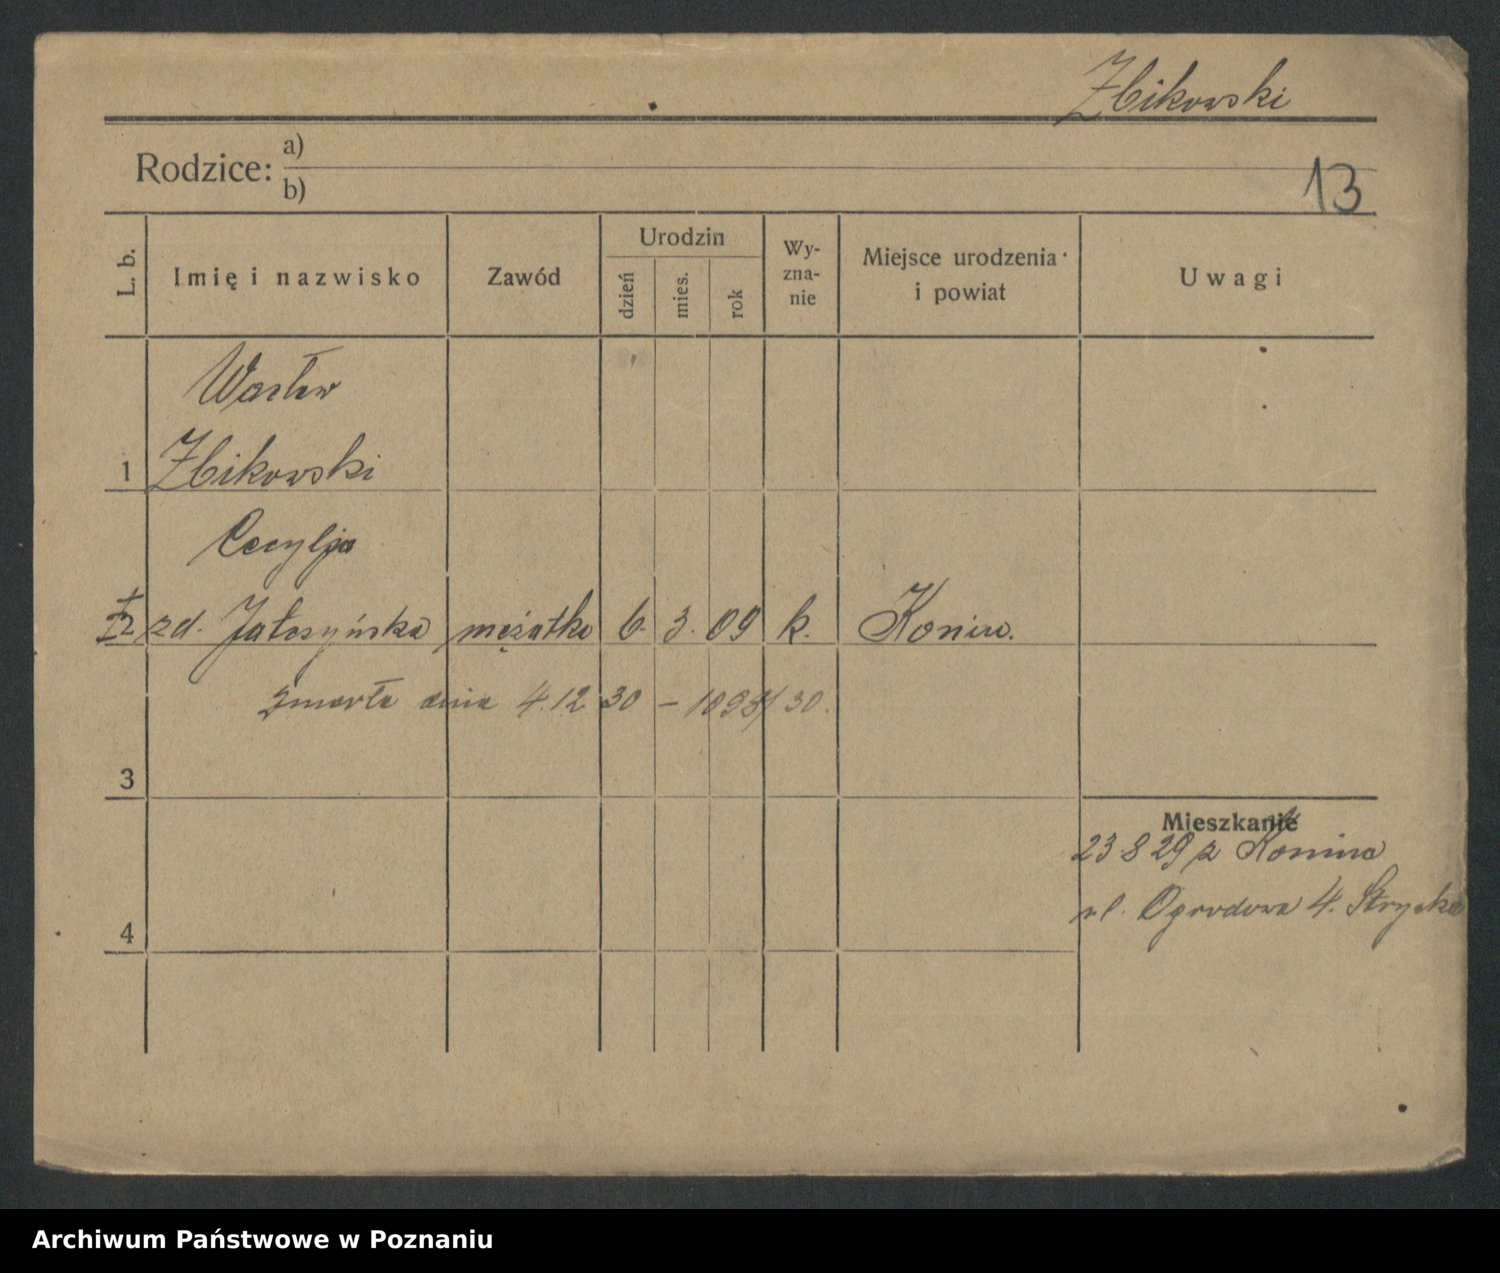 Zbikowski
Rodzice: a)
b)
13
L. b.
Imię i nazwisko
Zawód
Urodzin
dzień
mies.
rok
Wy-
zna-
nie
Miejsce urodzenia
i powiat
Uwagi
Wacław
1 Zbikowski
Cecylja
2 zd. Jałoszyńska mężatka 6. 3. 09 k. Konin.
zmarła dnia 4.12 30 – /30.
3
Mieszkanie
23 8 29 z Konina
ul. Ogrodowa 4.
4
Archiwum Państwowe w Poznaniu